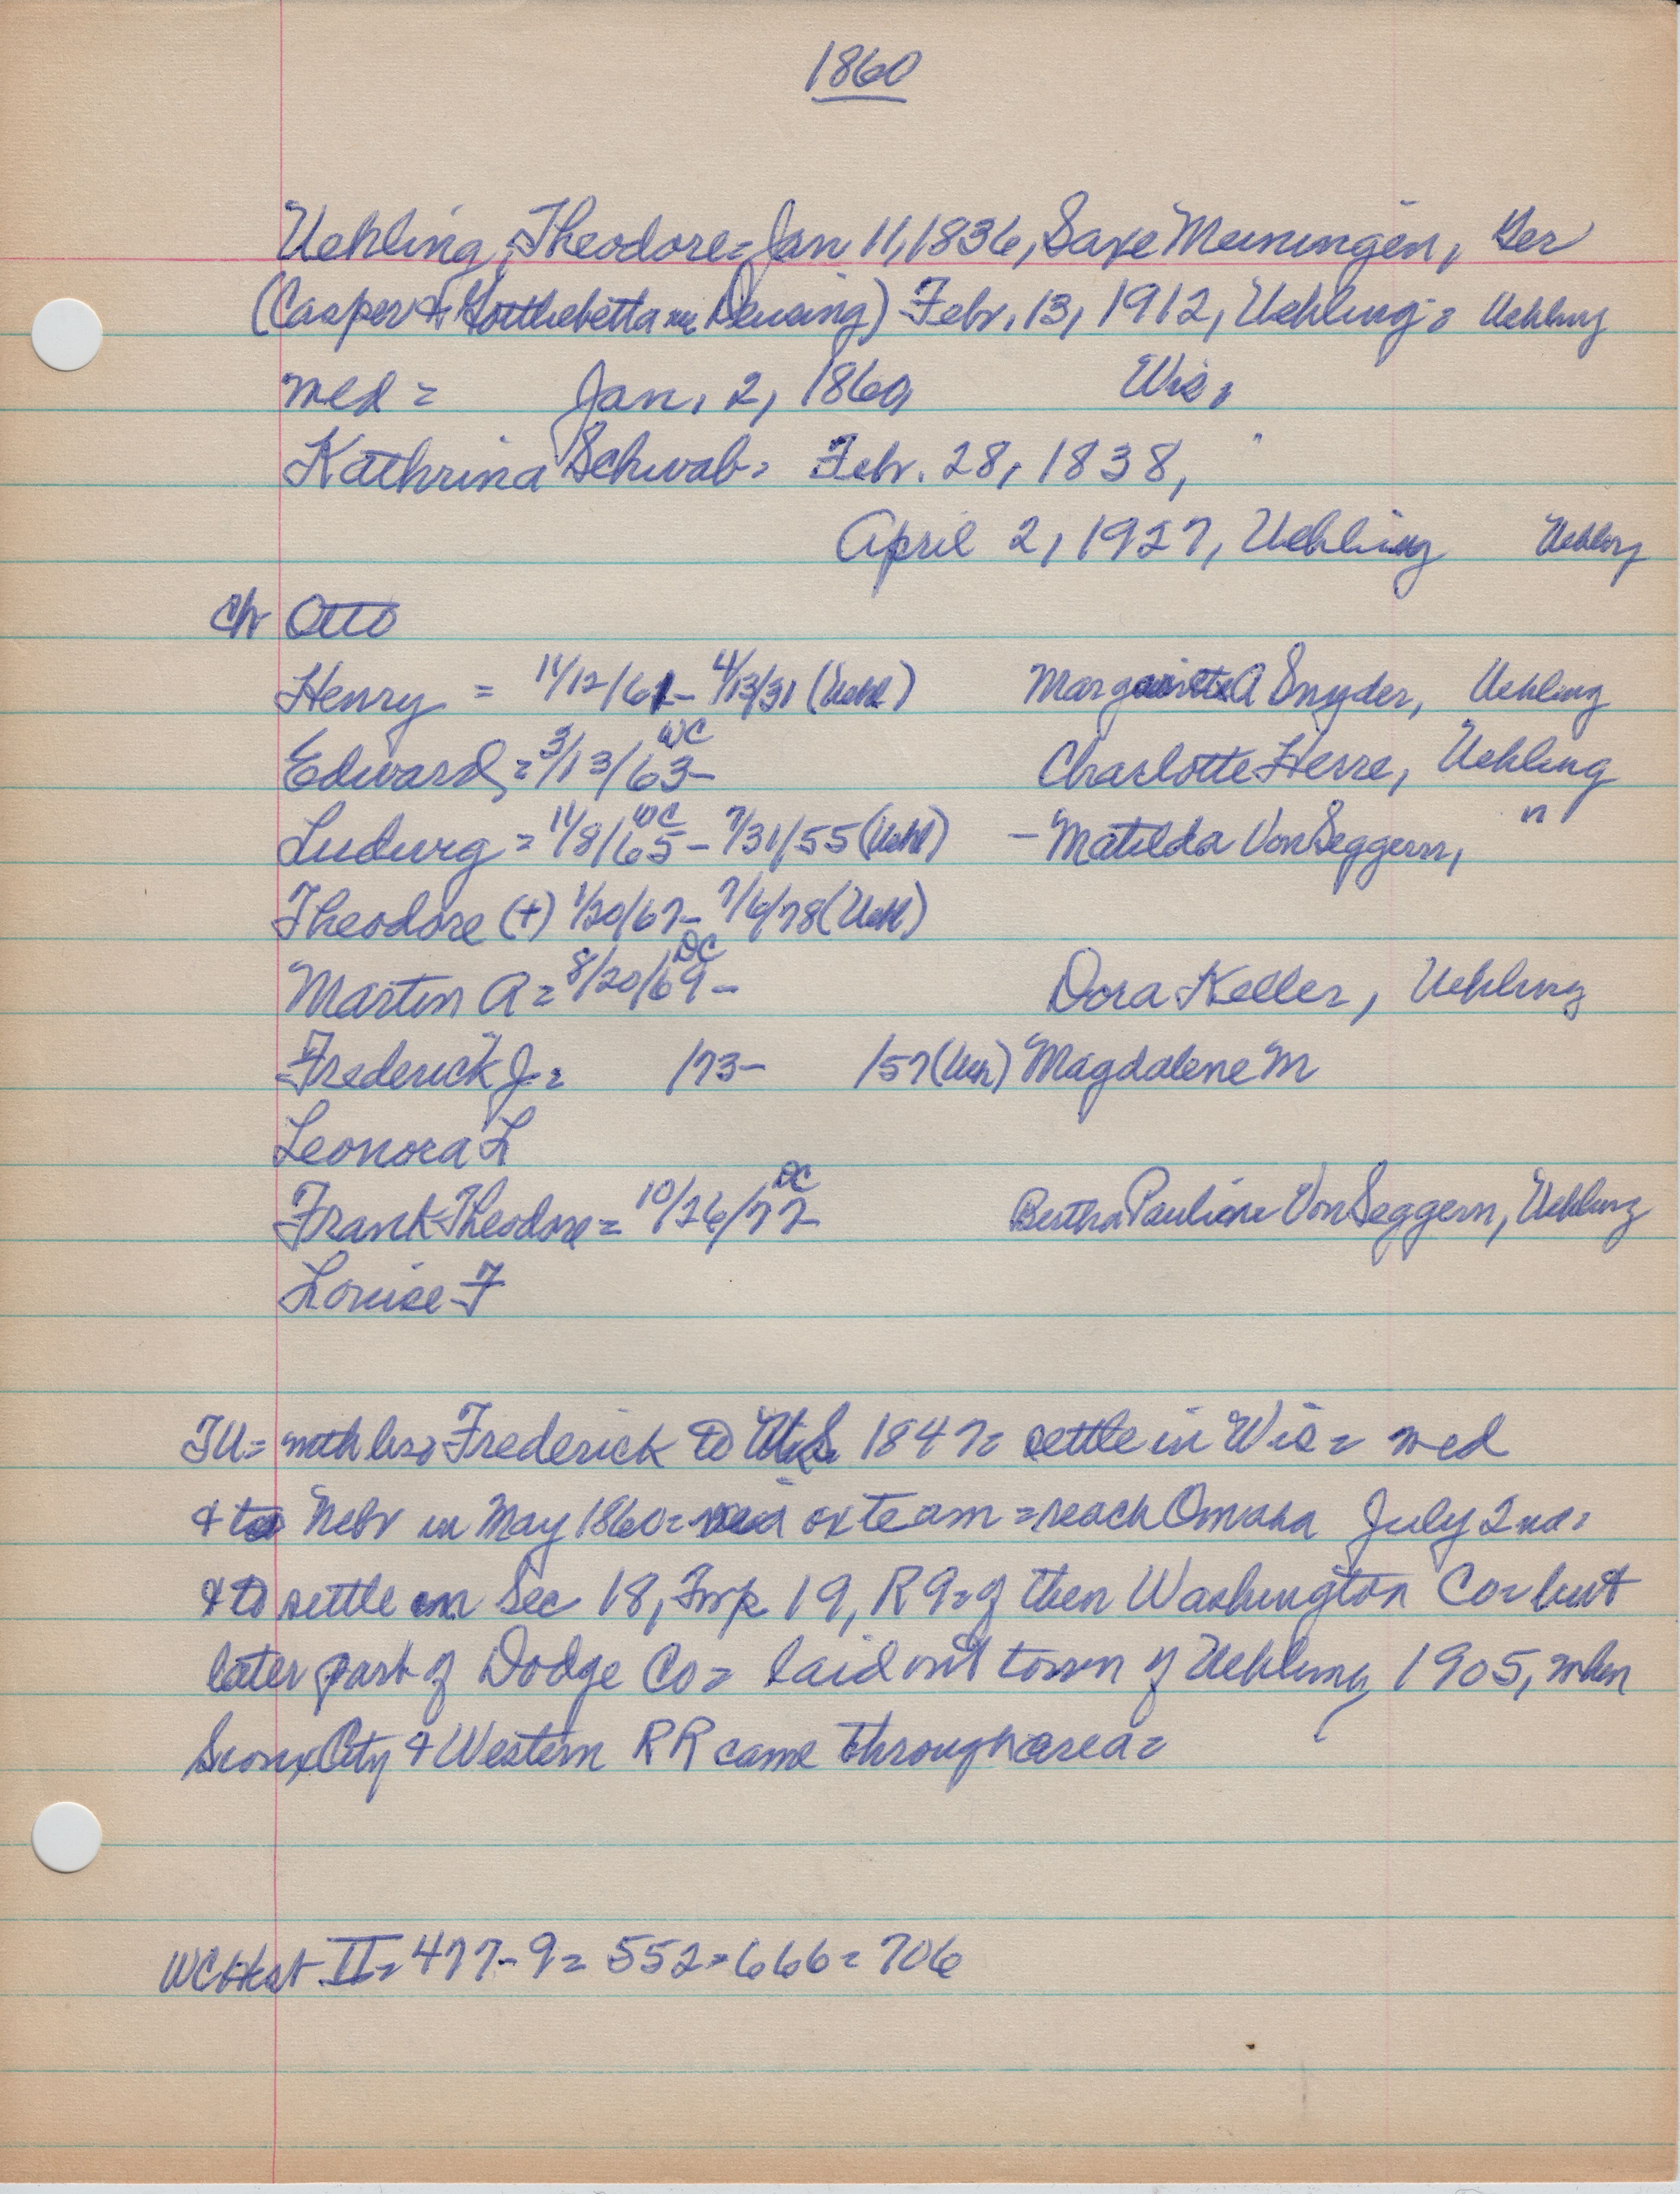 1860
Uehling, Theodore = Jan 11, 1836, Saxe Meiningen, Ger
(Casper & Deusing) Febr. 13, 1912, Uehling = Uehling
med = Jan. 2, 1860, Wis,
Kathrina Schwab = Febr. 28, 1838, "
April 2, 1927, Uehling Uehling
Ch Otto
Henry = 11/12/61 - 4/13/31 (Uehl) A Snyder, Uehling
WC
Edward = 3/13/63 - Charlotte Herre, Uehling
WC
Ludwig = 11/8/65 - 7/31/55 (Uehl) - Matilda VonSeggern, "
Theodore (+) 1/20/67 - 7/6/78 (Uehl)
DC
Martin A = 8/20/69 - Dora Keller, Uehling
Frederick J = /73 - /57 (Ueh) Magdalene M
Leonora L
DC
Frank Theodore = 10/26/72 Bertha Pauline VonSeggern, Uehling
Louise F
TU = with bro Frederick to U.S. 1847 = settle in Wis = med
& to Nebr in May 1860 = via ox team = reach Omaha July 2nd =
& to settle on Sec 18, Twp 19, R 9 = of then Washington Co = but
later part of Dodge Co = laid out town of Uehling 1905, when
Sioux City & Western RR came through area =
WC Hist II = 477-9 = 552 = 666 = 706